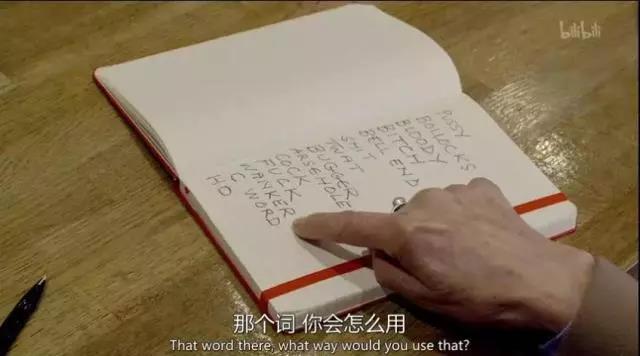 bilibili
PUSSY
BOLLOCKS
BLOODY
BITCH
BELL END
SHIT
TWAT
BUGGER
ARSEHOLE
COCK
FUCK
WANKER
C WORD
HD
那个词 你会怎么用
That word there, what way would you use that?